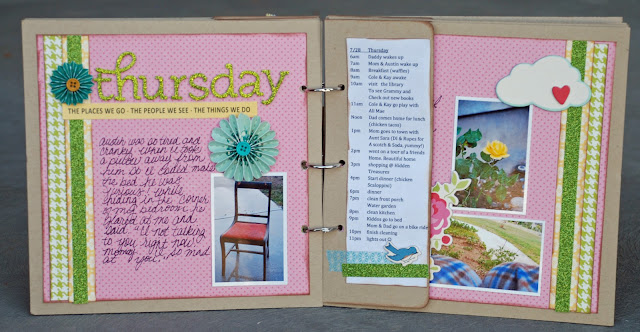 thursday
THE PLACES WE GO - THE PEOPLE WE SEE - THE THINGS WE DO
austin was so tired and
cranky when he took
a pillow away from
them so it could make
the bed he was
furious! While
hiding in the corner
of my bedroom, he
at me and
said "I'll not talking
to you right now
mommy. I'll so mad
at you."
7/28 Thursday
6am Daddy wakes up
7am Mom & Austin wake up
8am Breakfast (waffles)
9am Cole & Kay awake
10am visit the library
To see Grammy and
Check out new books
11am Cole & Kay go play with
Ali Mae
Noon Dad comes home for lunch
(chicken tacos)
1pm Mom goes to town with
Aunt Sara (DI & Rupes for
A scotch & Soda, yummy!)
2pm went on a tour of a friends
Home. Beautiful home
3pm shopping @ Hidden
Treasures
4pm Start dinner (chicken
Scaloppini)
6pm dinner
7pm clean front porch
Water garden
8pm clean kitchen
9pm Kiddos go to bed
Mom & Dad go on a bike ride
10pm finish cleaning
11pm lights out ☺